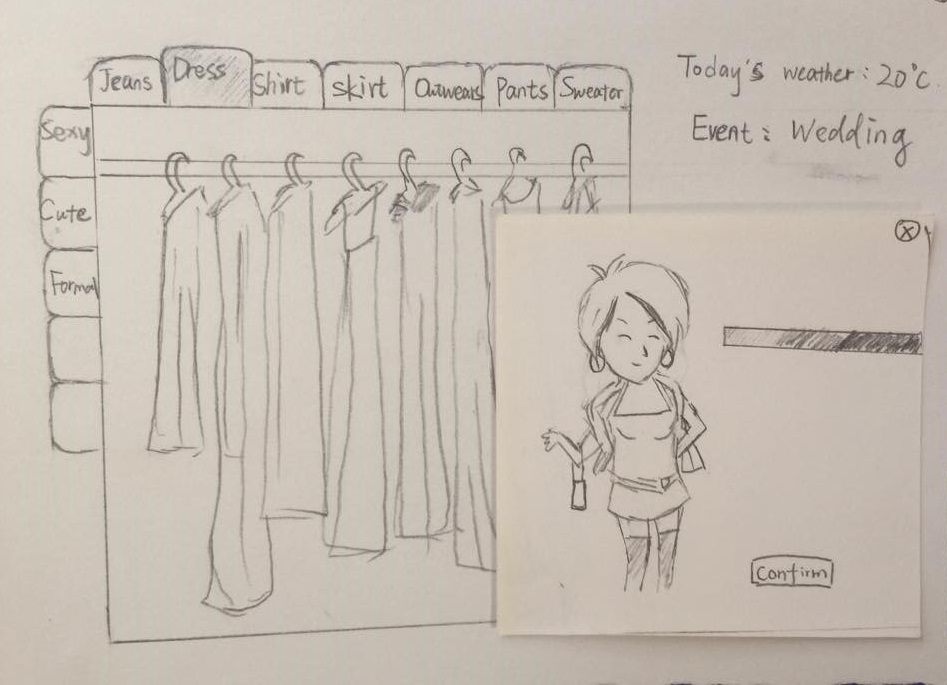 Jeans Dress Shirt skirt Outwears Pants Sweater
Today's weather: 20°C
Event: Wedding
Sexy
Cute
Formal
X
Confirm